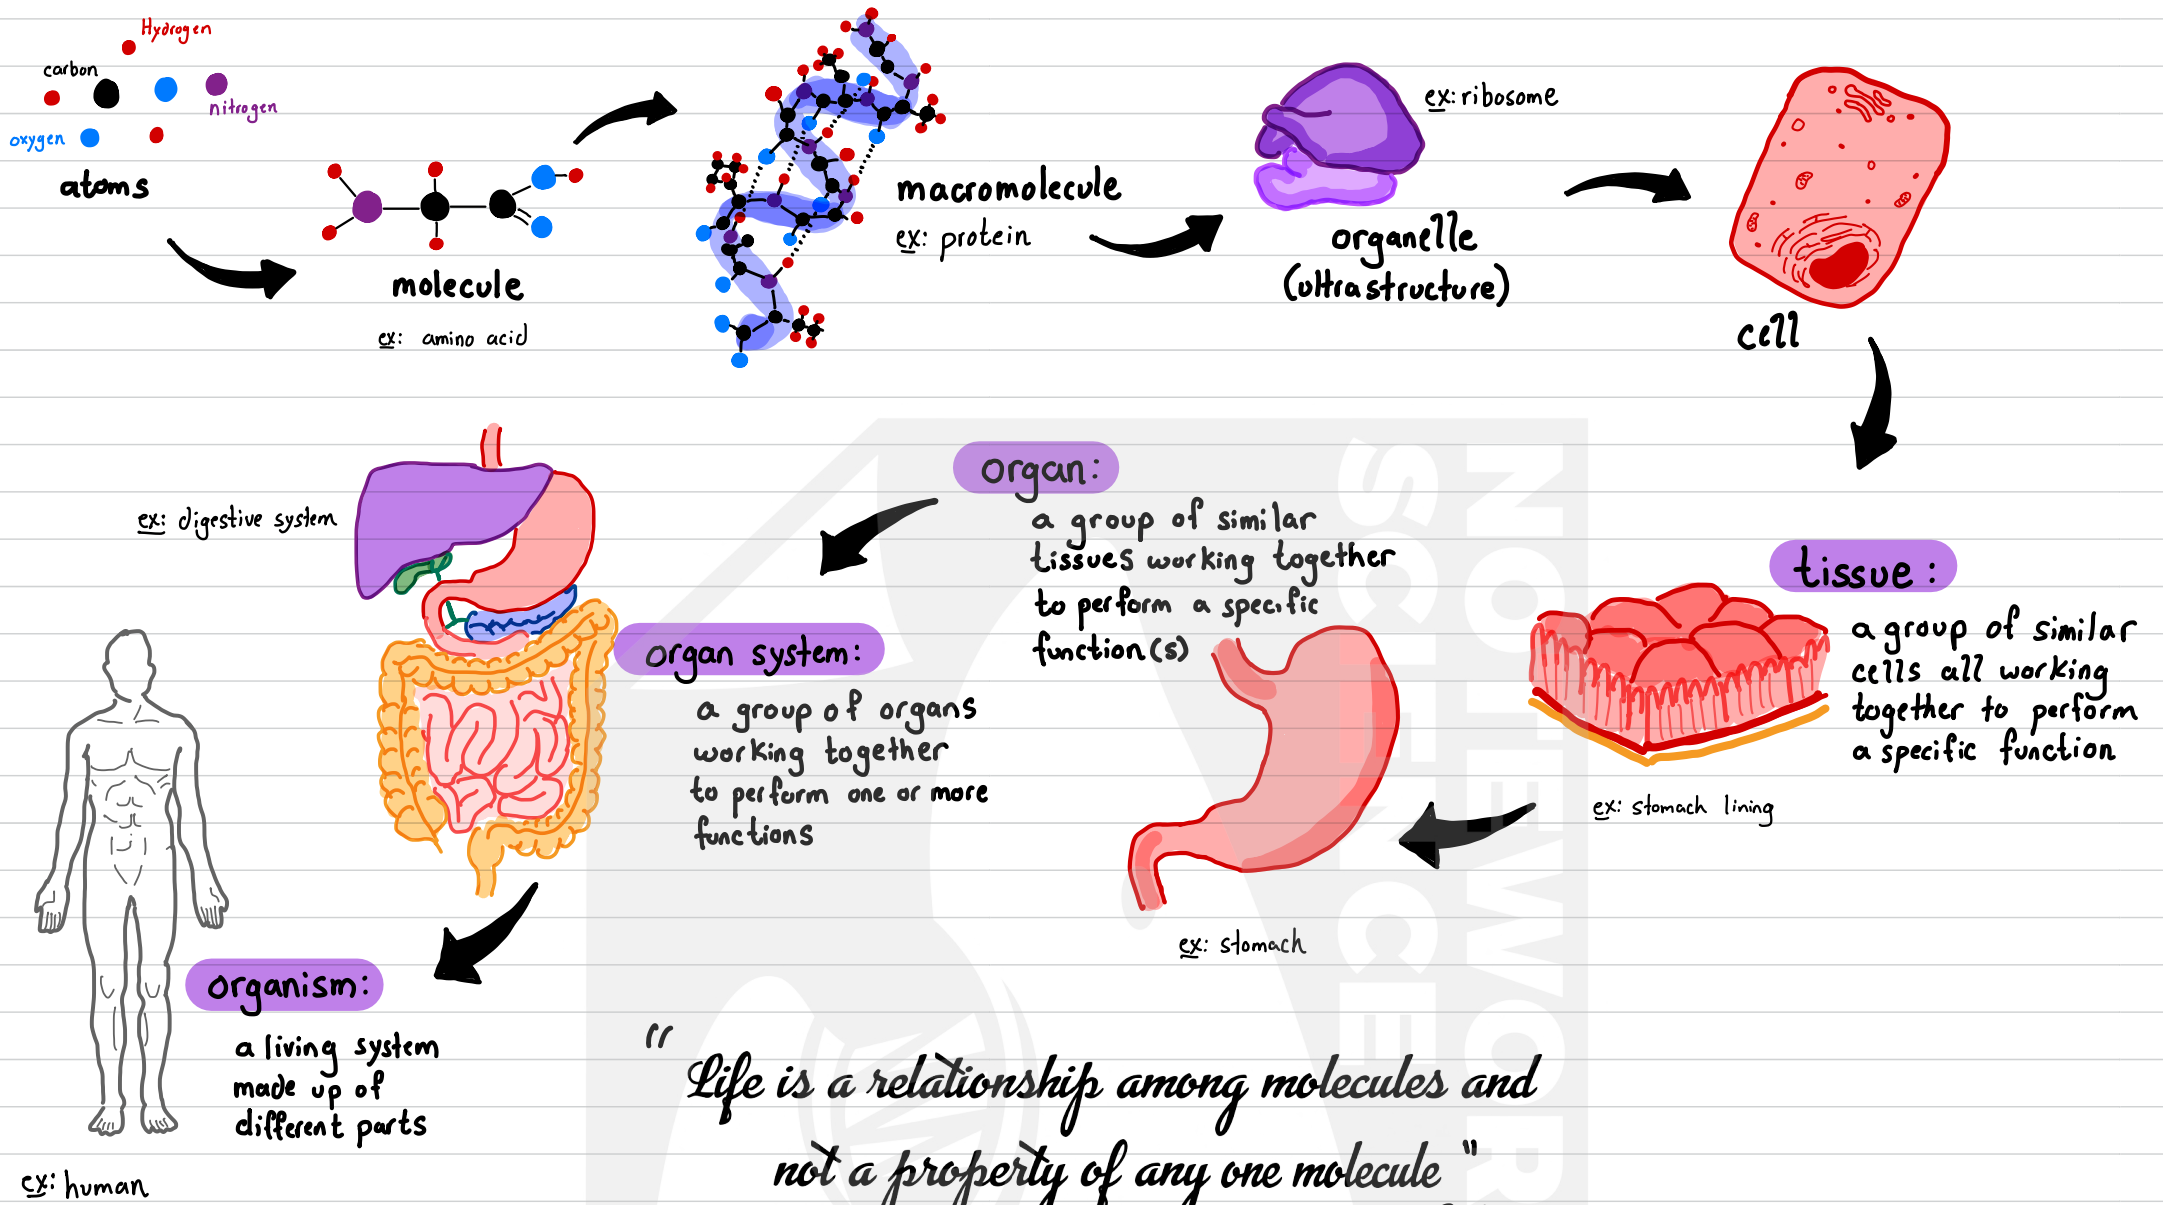 Hydrogen
carbon
nitrogen
oxygen
atoms
molecule
ex: amino acid
macromolecule
ex: protein
ex: ribosome
organelle
(ultrastructure)
cell
tissue:
a group of similar
cells all working
together to perform
a specific function
ex: stomach lining
organ:
a group of similar
tissues working together
to perform a specific
function(s)
ex: stomach
organ system:
a group of organs
working together
to perform one or more
functions
ex: digestive system
organism:
a living system
made up of
different parts
ex: human
"Life is a relationship among molecules and
not a property of any one molecule"
NOTEWOR
SCIENCE